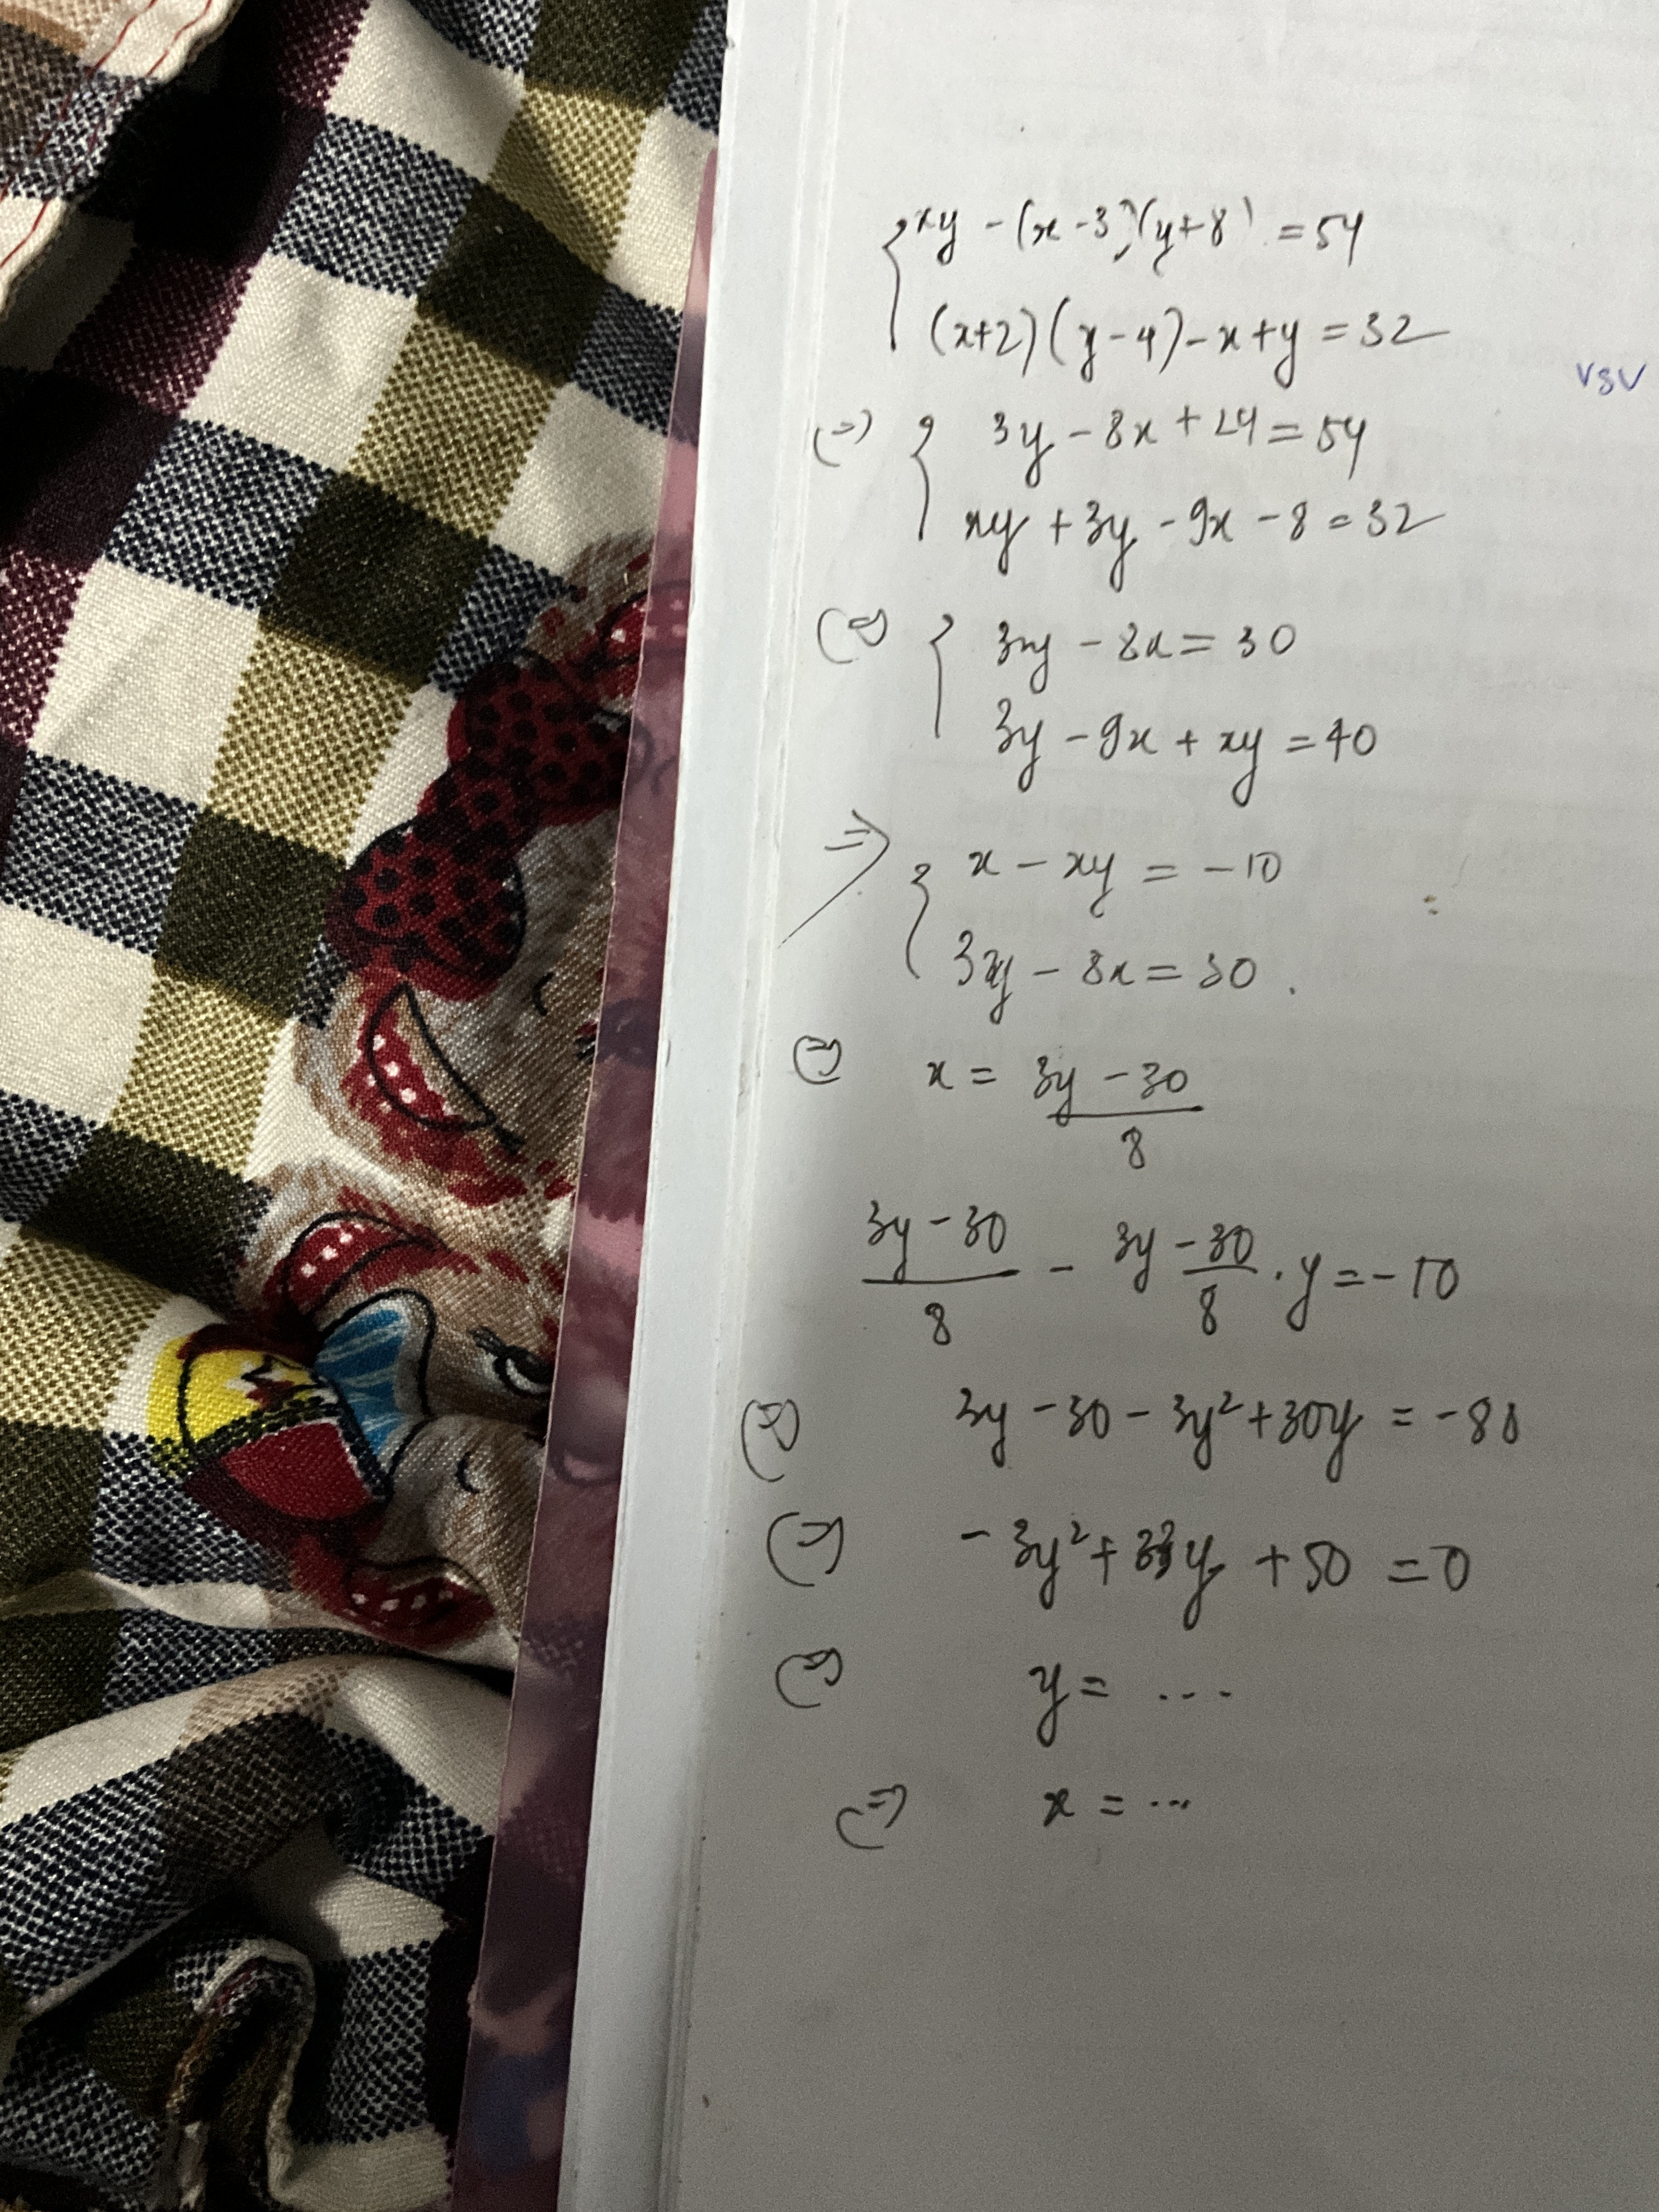 { xy - (x - 3)(y + 8) = 54
(x+2)(y - 4) - x + y = 32
VSV
(=) { 3y - 8x + 24 = 54
xy + 3y - 9x - 8 = 32
(=) { 3y - 8x = 30
3y - 9x + xy = 40
=> { x - xy = -10
3y - 8x = 30 .
(=) x = 3y - 30 / 8
3y - 30 / 8 - 3y - 30 / 8 . y = -10
(=) 3y - 30 - 3y² + 30y = -80
(=) - 3y² + 33y + 50 = 0
(=) y = ...
(=) x = ...